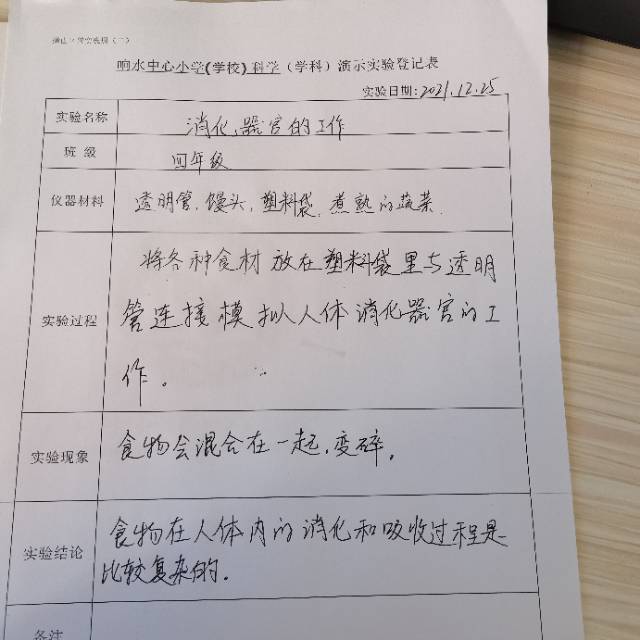 响水中心小学(学校)科学(学科)演示实验登记表
实验日期:2021.12.25
实验名称 消化器官的工作
班 级 四年级
仪器材料 透明管、馒头、塑料袋、煮熟的蔬菜
实验过程 将各种食材放在塑料袋里与透明
管连接模拟人体消化器官的工
作。
实验现象 食物会混合在一起,变碎。
实验结论 食物在人体内的消化和吸收过程是
比较复杂的。
备注